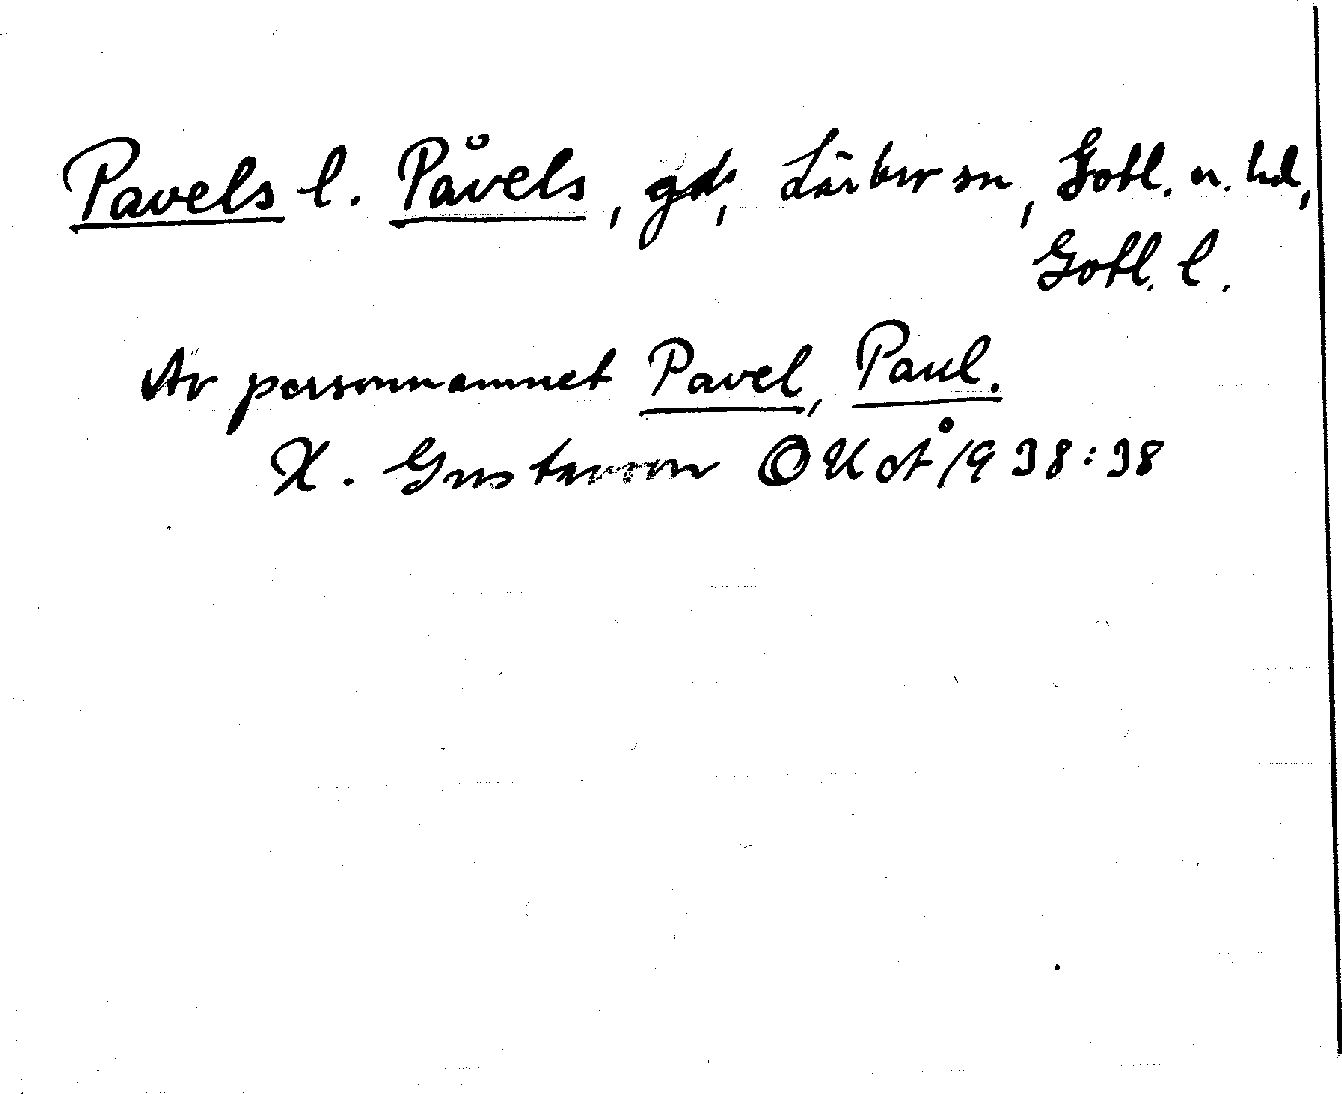 Pavels l. Påvels, gd, Lärbro sn, Gotl. n. hd,
Gotl. l.
Av personnamnet Pavel, Paul.
H. Gustavson OUoÅ 1938:38